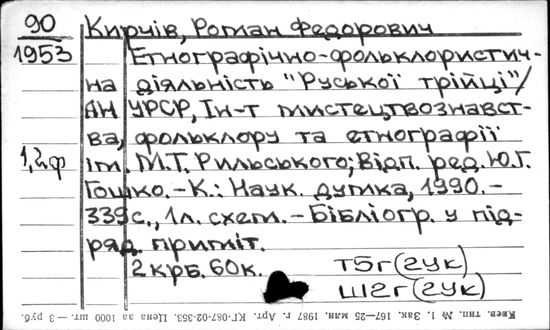 90
1953
Кирчів, Роман Федорович
Етнографічно-фольклористич-
на діяльність "Руської трійці"/
АН УРСР, Ін-т мистецтвознавст-
ва, фольклору та етнографії
1,2ф
ім. М.Т. Рильського; Відп. ред. Ю.Г.
Гошко. - К.: Наук. думка, 1990. -
339с., 1л. схем. - Бібліогр. у під-
ряд. приміт.
2крб. 60к.
Т5г(2УК)
Ш2г(2УК)
Киев. тип. № 1. Зак. 167—25 млн. 1987 г. Арт. КГ-087-02-353. Цена за 1000 шт. — 3 руб.